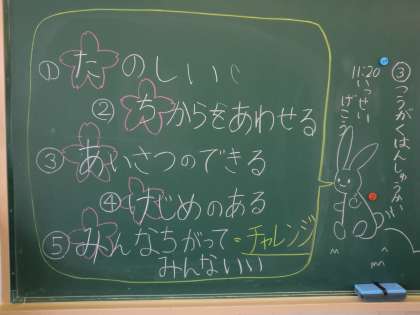 ① たのしい
② ちからをあわせる
③ あいさつのできる
④ けじめのある
⑤ みんなちがって=チャレンジ
みんないい
11:20
いっせい
げこう
③ つうがくはんしゅうかい